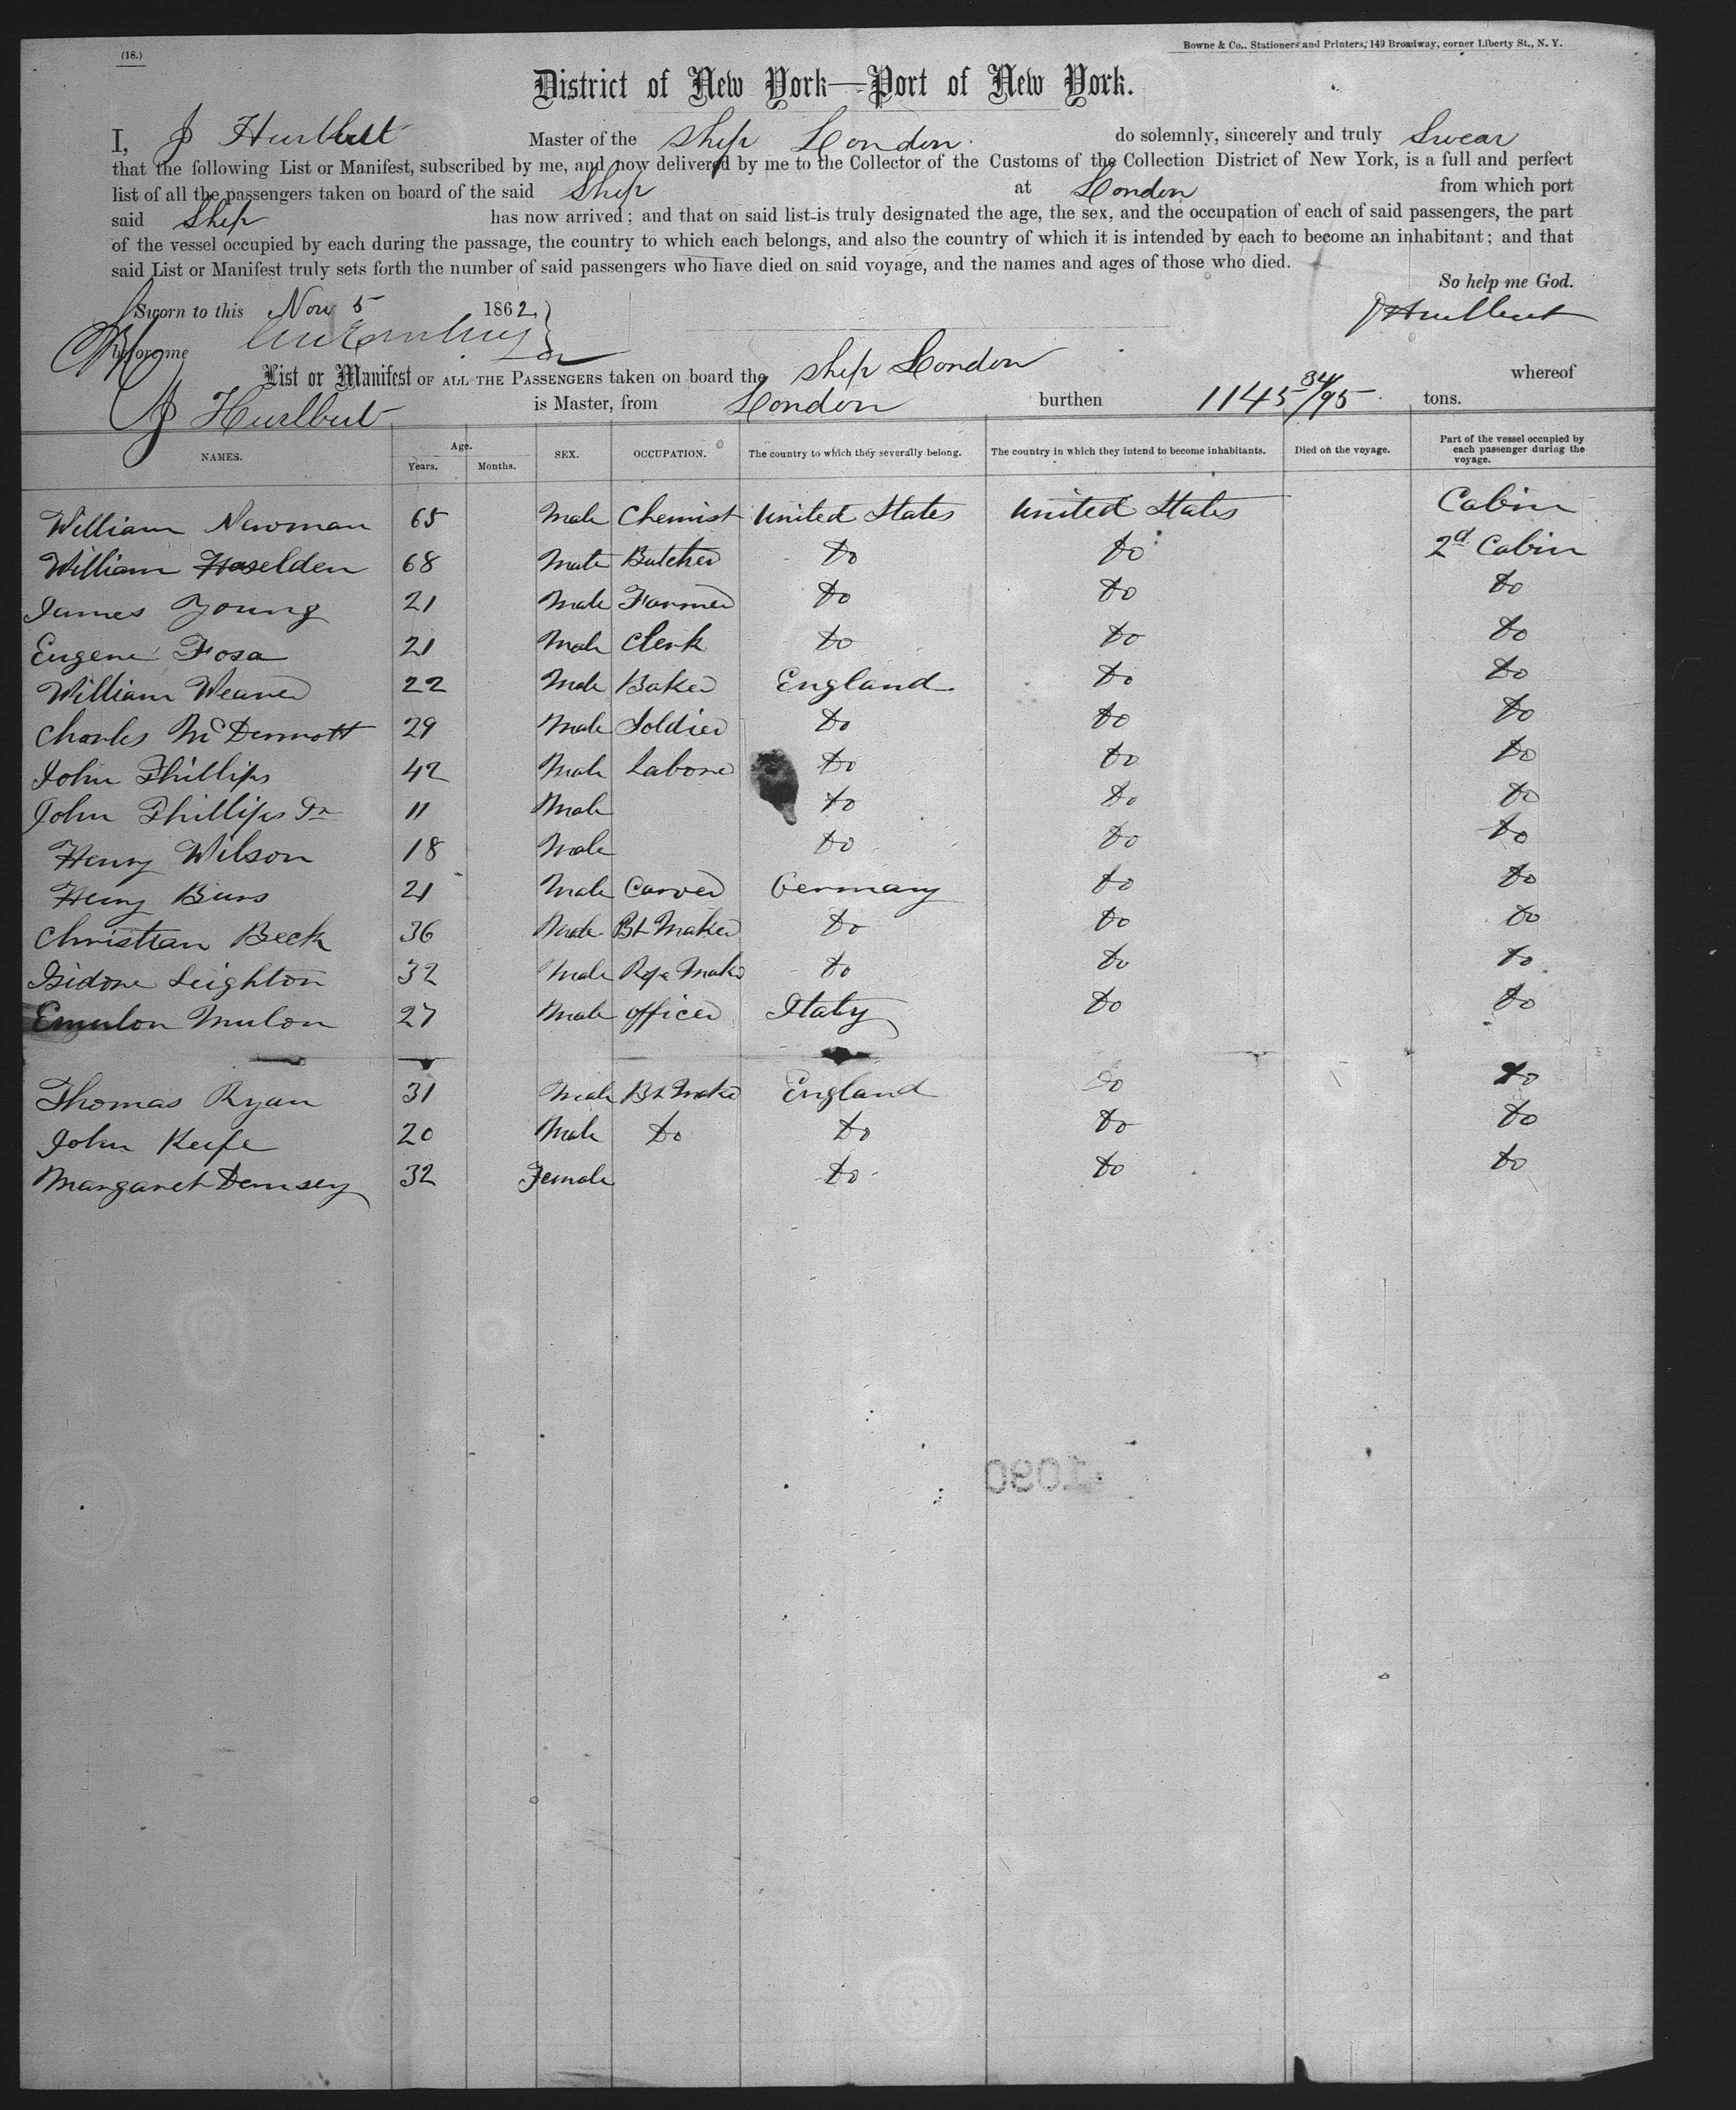 (18.)
Bowne & Co., Stationers and Printers, 149 Broadway, corner Liberty St., N. Y.
District of New York—Port of New York.
I, J Hurlbut Master of the Ship London do solemnly, sincerely and truly Swear
that the following List or Manifest, subscribed by me, and now delivered by me to the Collector of the Customs of the Collection District of New York, is a full and perfect
list of all the passengers taken on board of the said Ship at London from which port
said Ship has now arrived; and that on said list is truly designated the age, the sex, and the occupation of each of said passengers, the part
of the vessel occupied by each during the passage, the country to which each belongs, and also the country of which it is intended by each to become an inhabitant; and that
said List or Manifest truly sets forth the number of said passengers who have died on said voyage, and the names and ages of those who died.
So help me God.
Sworn to this Nov 5 1862,
J Hurlbut
before me
List or Manifest OF ALL THE PASSENGERS taken on board the Ship London whereof
J Hurlbut is Master, from London burthen 1145 34/95 tons.
NAMES. Age. Years. Months. SEX. OCCUPATION. The country to which they severally belong. The country in which they intend to become inhabitants. Died on the voyage. Part of the vessel occupied by each passenger during the voyage.
William Newman 65 Male Chemist United States United States Cabin
William Haselden 68 Male Butcher Do Do 2d Cabin
James Young 21 Male Farmer Do Do Do
Eugene Fosa 21 Male Clerk Do Do Do
William Weaver 22 Male Baker England Do Do
Charles McDermott 29 Male Soldier Do Do Do
John Phillips 42 Male Laborer Do Do Do
John Phillips Jr 11 Male Do Do Do
Henry Wilson 18 Male Do Do Do
Henry Burs 21 Male Carver Germany Do Do
Christian Beck 36 Male Bt Maker Do Do Do
Isidore Leighton 32 Male Rope Maker Do Do Do
Emulon Mulon 27 Male Officer Italy Do Do
Thomas Ryan 31 Male Bt Maker England Do Do
John Keefe 20 Male Do Do Do Do
Margaret Demsey 32 Female Do Do Do
1090